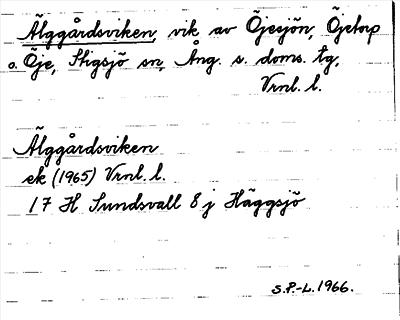 Älggårdsviken, vik av Öjesjön, Öjetorp
o. Öje, Stigsjö sn, Ång. s. doms. tg,
Vrnl. l.
Älggårdsviken
ek (1965) Vrnl. l.
17 H Sundsvall 8 j Häggsjö
S.P.-L. 1966.